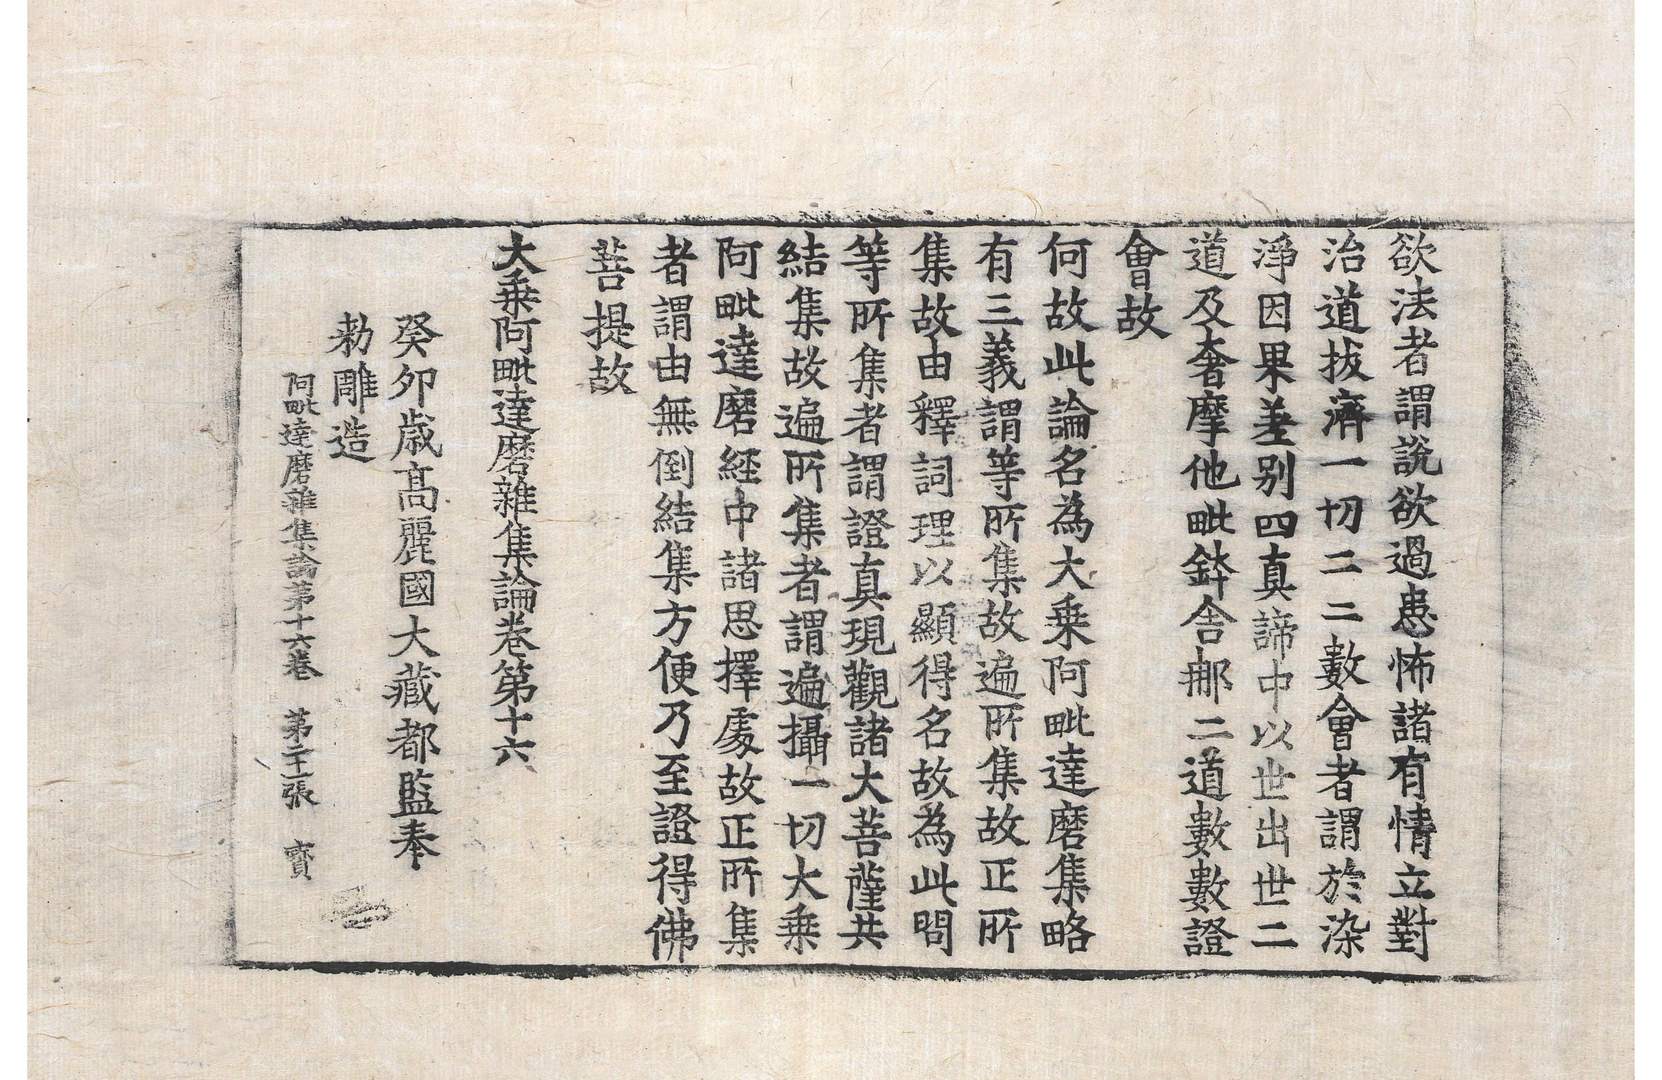 欲法者謂說欲過患怖諸有情立對
治道拔濟一切二二數會者謂於染
淨因果差別四真諦中以世出世二
道及奢摩他毗鉢舍那二道數數證
會故
何故此論名為大乗阿毗達磨集略
有三義謂等所集故遍所集故正所
集故由釋詞理以顯得名故為此問
等所集者謂證真現觀諸大菩薩共
結集故遍所集者謂遍攝一切大乗
阿毗達磨經中諸思擇處故正所集
者謂由無倒結集方便乃至證得佛
菩提故
大乗阿毗達磨雜集論卷第十六
癸卯歲高麗國大藏都監奉
勑雕造
阿毗達磨雜集論第十六卷 第二十一張 賓